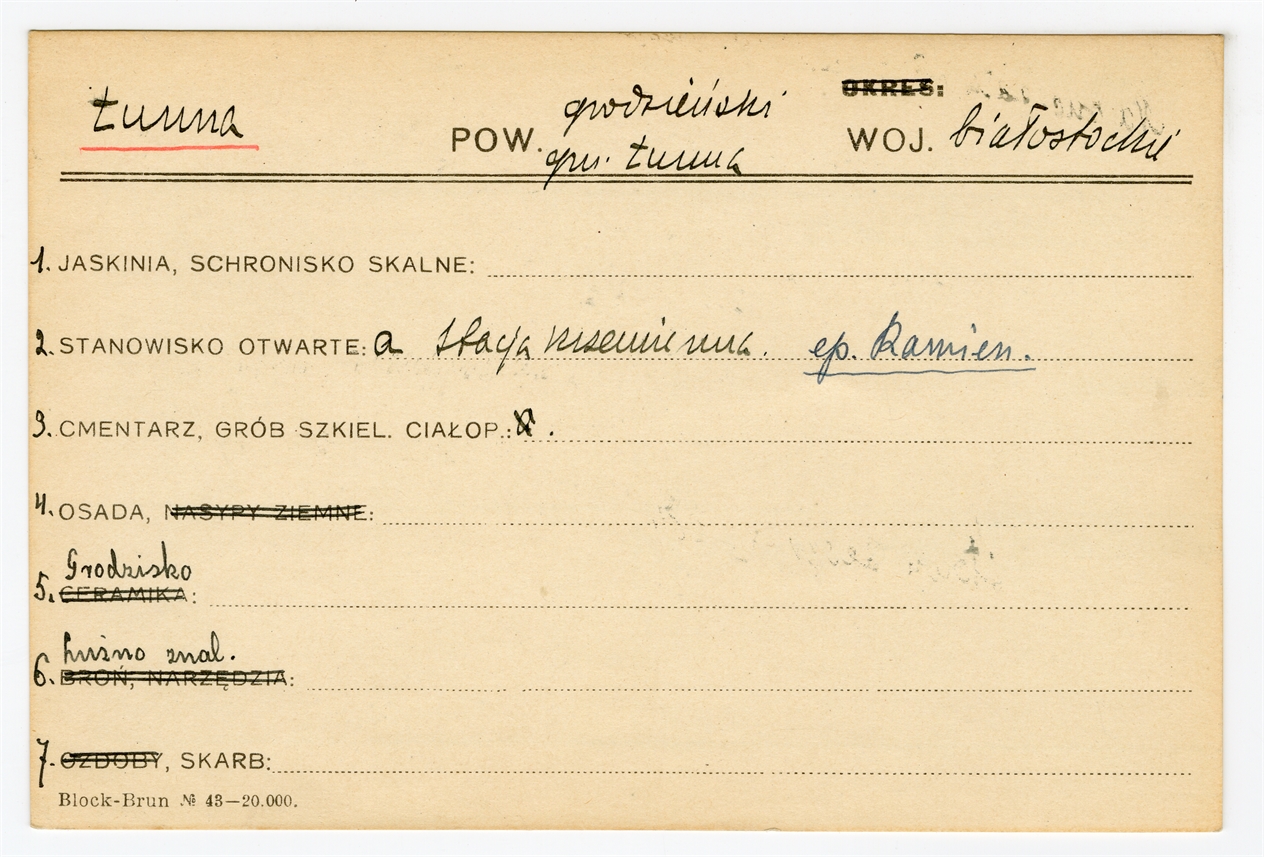 OKRES:
Łunna POW. grodzieński WOJ. białostockie
gm. Łunna
1. JASKINIA, SCHRONISKO SKALNE:
2. STANOWISKO OTWARTE: a stacja krzemienna. ep. Kamien.
3. CMENTARZ, GRÓB SZKIEL. CIAŁOP.:
4. OSADA, NASYPY ZIEMNE:
Grodzisko
5. CERAMIKA:
Luźno znal.
6. BROŃ, NARZĘDZIA:
7. OZDOBY, SKARB:
Block-Brun № 43—20.000.